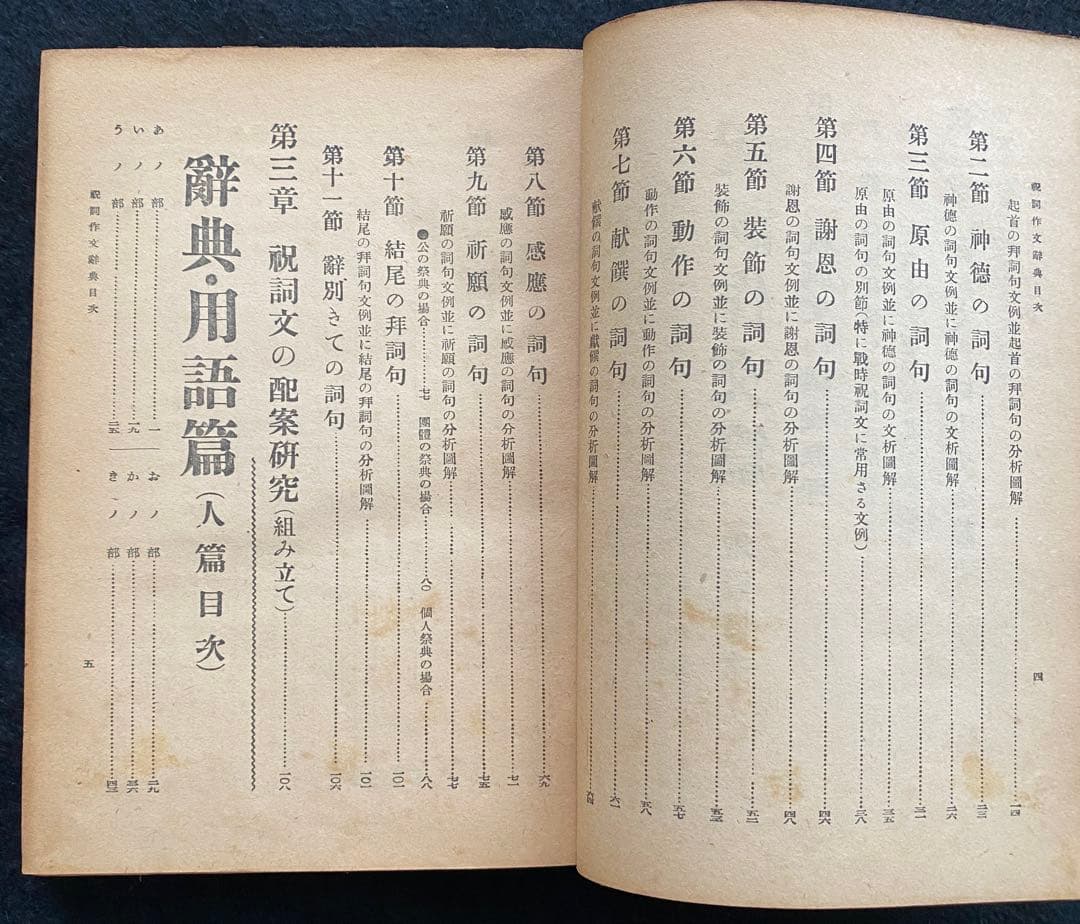 祝詞作文辭典目次
四
起首の拜詞句文例並起首の拜詞句の分析圖解……一四
第二節 神德の詞句……二三
神德の詞句文例並に神德の詞句の文解……二六
第三節 原由の詞句……三一
原由の詞句文例並に神德の詞句の文析圖解……三五
原由の詞句の別節(特に戰時祝詞文に常用さる文例)……三八
第四節 謝恩の詞句……四六
謝恩の詞句文例並に謝恩の詞句の分析圖解……四八
第五節 裝飾の詞句……五二
裝飾の詞句文例並に裝飾の詞句の分析圖解……五三
第六節 動作の詞句……五七
動作の詞句文例並に動作の詞句の分析圖解……五八
第七節 献饌の詞句……六一
献饌の詞句文例並に献饌の詞句の分析圖解……六四
第八節 感應の詞句……六九
感應の詞句文例並に感應の詞句の分析圖解……七一
第九節 祈願の詞句……七五
祈願の詞句文例並に祈願の詞句の分析圖解……七七
●公の祭典の場合……七七 團體の祭典の場合……八〇 個人祭典の場合……八八
第十節 結尾の拜詞句……一〇一
結尾の拜詞句文例並に結尾の拜詞句の分析圖解……一〇一
第十一節 辭別きての詞句……一〇六
第三章 祝詞文の配案硏究(組み立て)……一〇八
辭典・用語篇(人篇目次)
あノ部……一 おノ部……二九
いノ部……一九 かノ部……三六
うノ部……二五 きノ部……四三
祝詞作文辭典目次
五